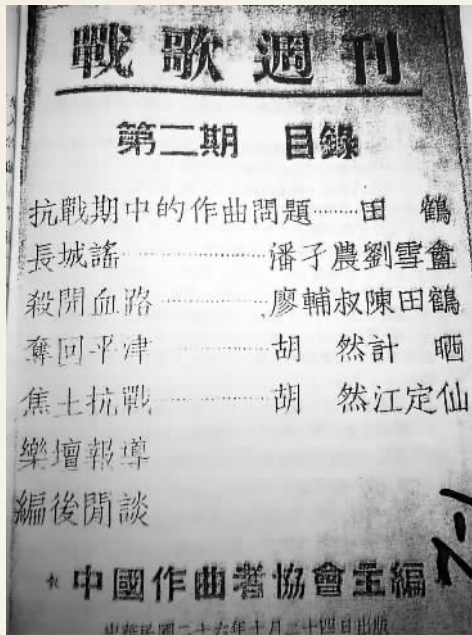 戰歌週刊
第二期 目錄
抗戰期中的作曲問題………田 鶴
長城謠………………潘孑農劉雪盦
殺開血路………………廖輔叔陳田鶴
奪回平津………………胡 然計 晒
焦土抗戰………………胡 然江定仙
樂壇報導
編後閒談
中國作曲者協會主編
中華民國二十六年十月二十四日出版